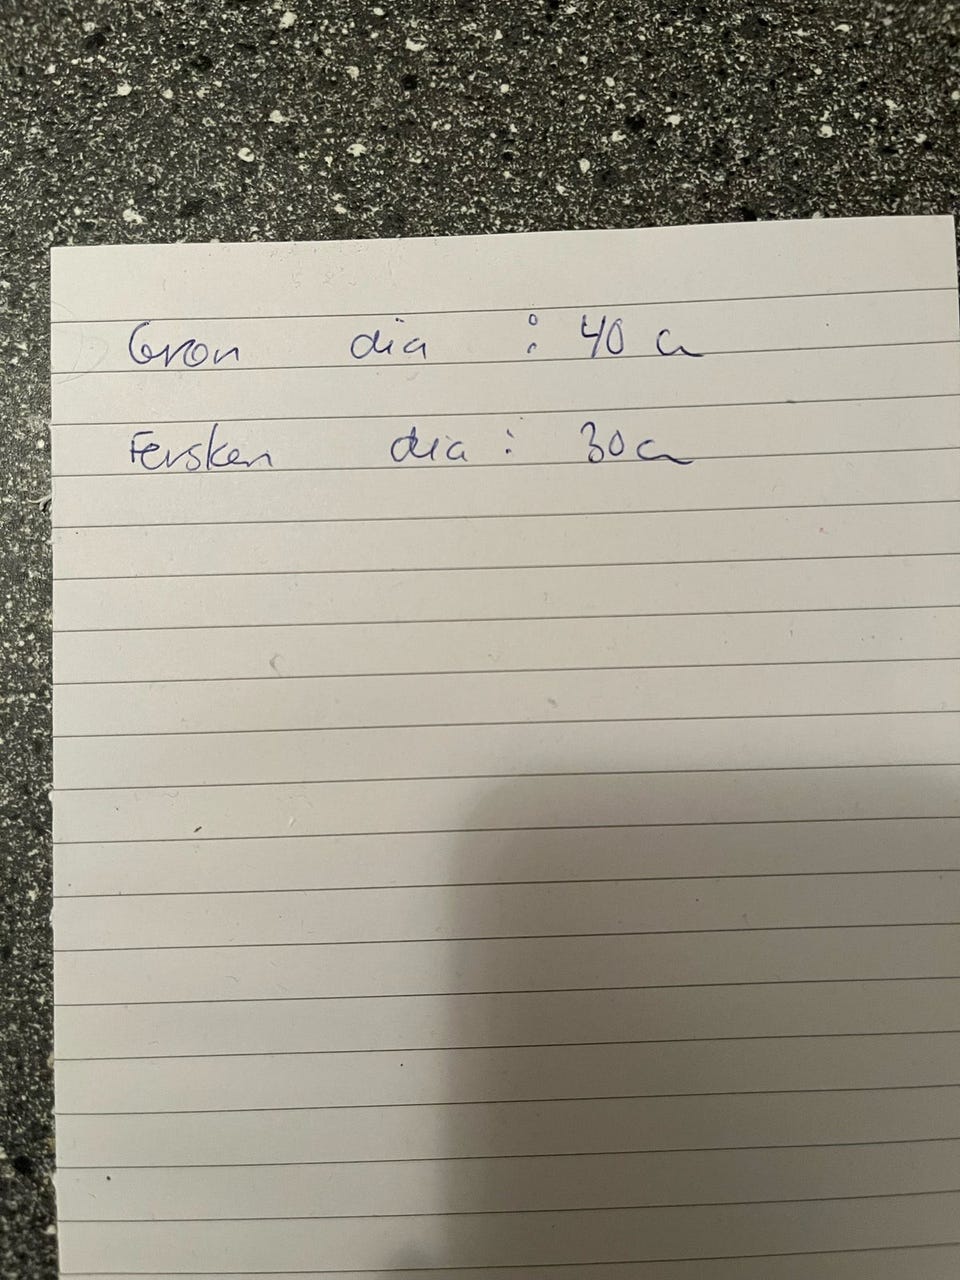 Gron dia : 40 cm
Fersken dia : 30 cm